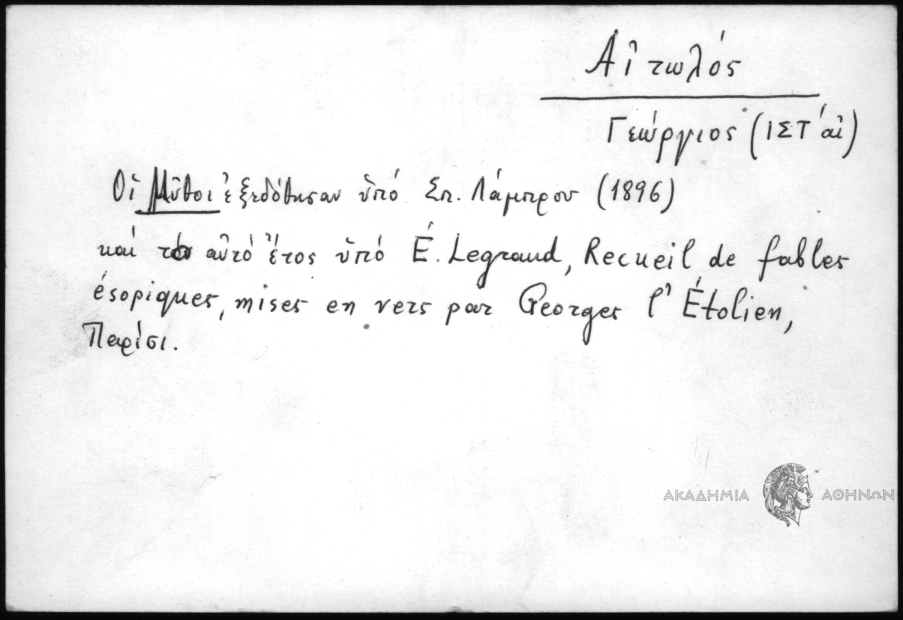 Αἰτωλός
Γεώργιος (ΙΣΤ' αἰ)
Οἱ Μῦθοι ἐξεδόθησαν ὑπό Σπ. Λάμπρου (1896)
καί τό αὐτό ἔτος ὑπό É. Legrand, Recueil de fables
ésopiques, mises en vers par Georges l' Étolien,
Παρίσι.
ΑΚΑΔΗΜΙΑ ΑΘΗΝΩΝ